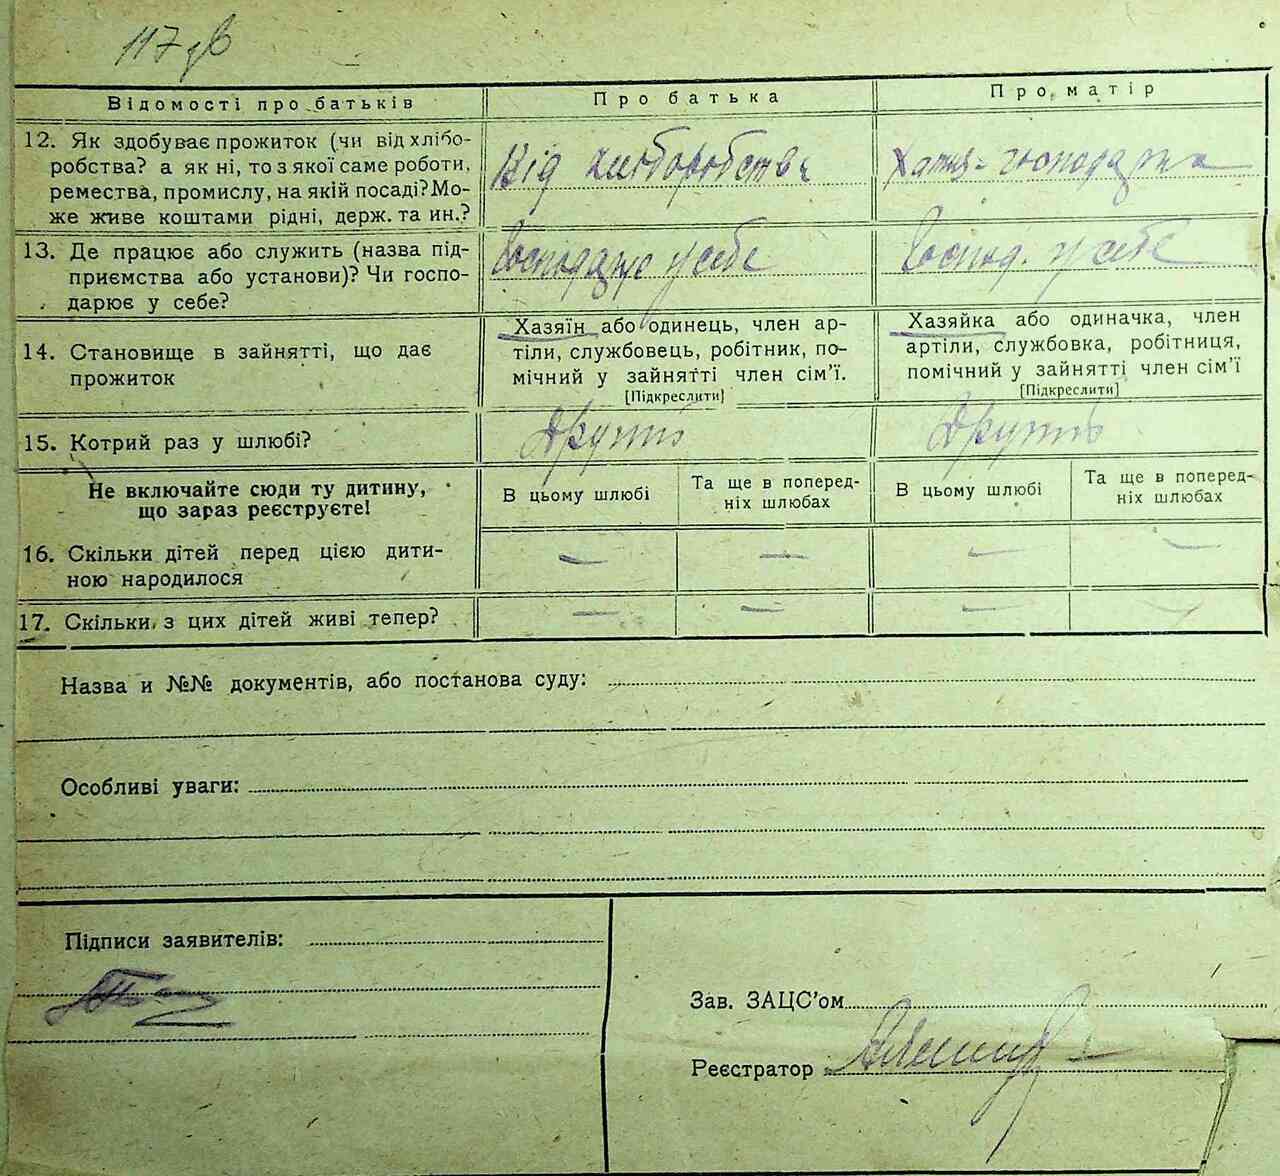 117 зв
Відомості про батьків
Про батька
Про матір
12. Як здобуває прожиток (чи від хлібо-
робства? а як ні, то з якої саме роботи,
ремества, промислу, на якій посаді? Мо-
же живе коштами рідні, держ. та ин.?
Від хліборобства
Хатня-господарка
13. Де працює або служить (назва під-
приємства або установи)? Чи госпо-
дарює у себе?
Господарює у себе
Господ. у себе
14. Становище в зайнятті, що дає
прожиток
Хазяїн або одинець, член ар-
тіли, службовець, робітник, по-
мічний у зайнятті член сім'ї.
[Підкреслити]
Хазяйка або одиначка, член
артіли, службовка, робітниця,
помічний у зайнятті член сім'ї
[Підкреслити]
15. Котрий раз у шлюбі?
Не включайте сюди ту дитину,
що зараз реєструєте!
В цьому шлюбі
Та ще в поперед-
ніх шлюбах
В цьому шлюбі
Та ще в поперед-
ніх шлюбах
16. Скільки дітей перед цією дити-
ною народилося
— — — —
17. Скільки з цих дітей живі тепер?
— — —
Назва и №№ документів, або постанова суду:
Особливі уваги:
Підписи заявителів:
Зав. ЗАЦС'ом
Реєстратор